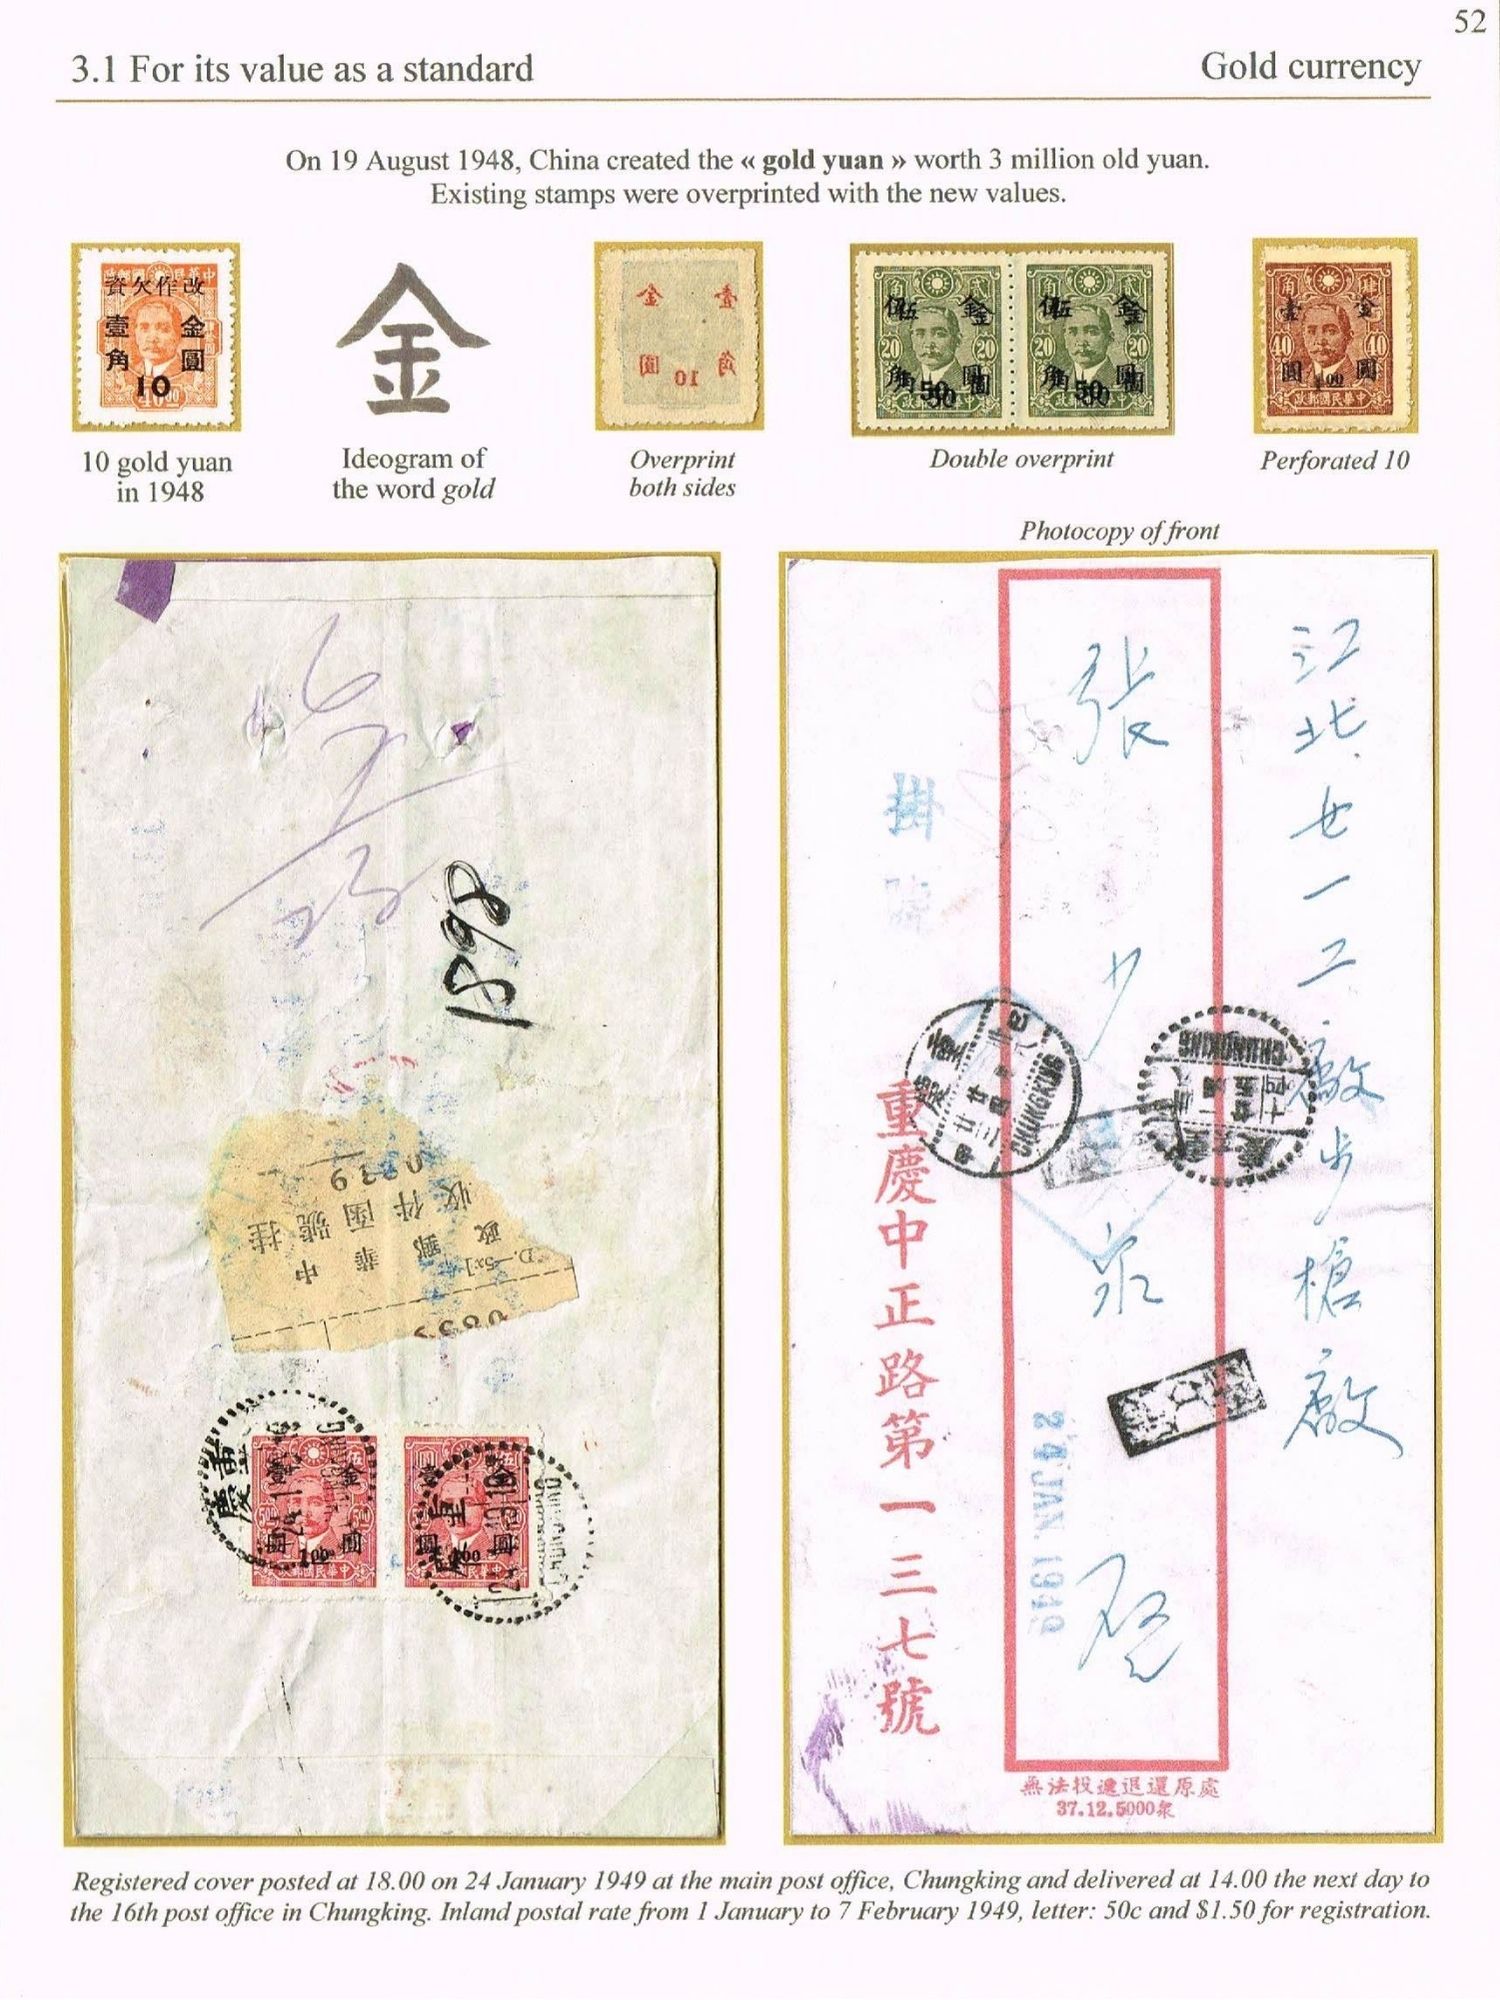 52
3.1 For its value as a standard
Gold currency
On 19 August 1948, China created the « gold yuan » worth 3 million old yuan.
Existing stamps were overprinted with the new values.
政郵國民華中
資欠作改
金圓
壹角
10
金
金 壹
圓 角
10
角 貳
20 20
50
角 貳
20 20
50
角 肆
金 壹
40 40
圓 圓
1.00
政郵國民華中
10 gold yuan
in 1948
Ideogram of
the word gold
Overprint
both sides
Double overprint
Perforated 10
Photocopy of front
1898
0339
中華郵政
挂號函件收
D.—5x1
重慶
CHUNGKING
圓 伍
金
圓 圓
1.00
政郵國民華中
江北廿一工廠步槍廠
張少泉
掛號
重慶
CHUNGKING
CHUNGKING
24 JAN. 1949
重慶中正路第一三七號
無法投遞退還原處
37.12.5000泉
Registered cover posted at 18.00 on 24 January 1949 at the main post office, Chungking and delivered at 14.00 the next day to
the 16th post office in Chungking. Inland postal rate from 1 January to 7 February 1949, letter: 50c and $1.50 for registration.